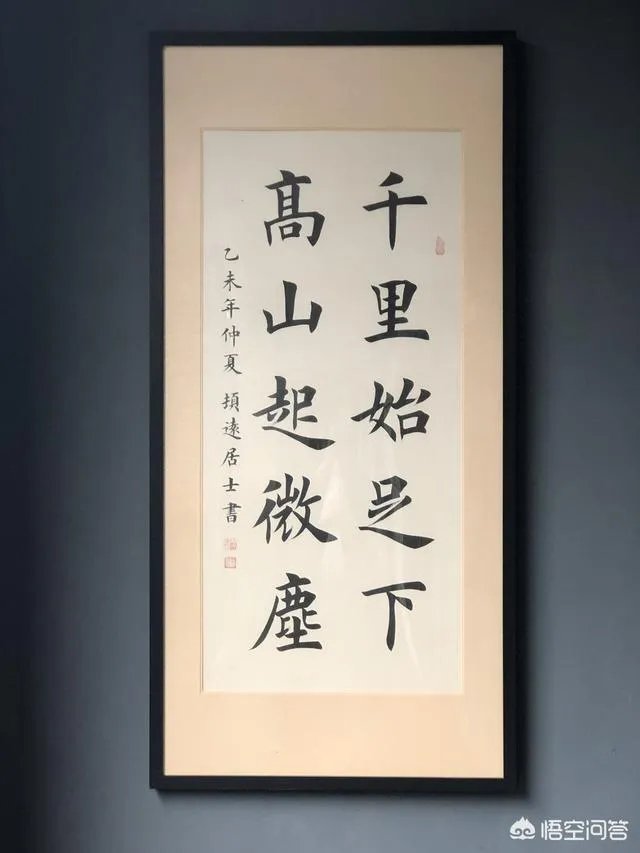 千里始足下
高山起微塵
乙未年仲夏 頍遠居士書
悟空问答